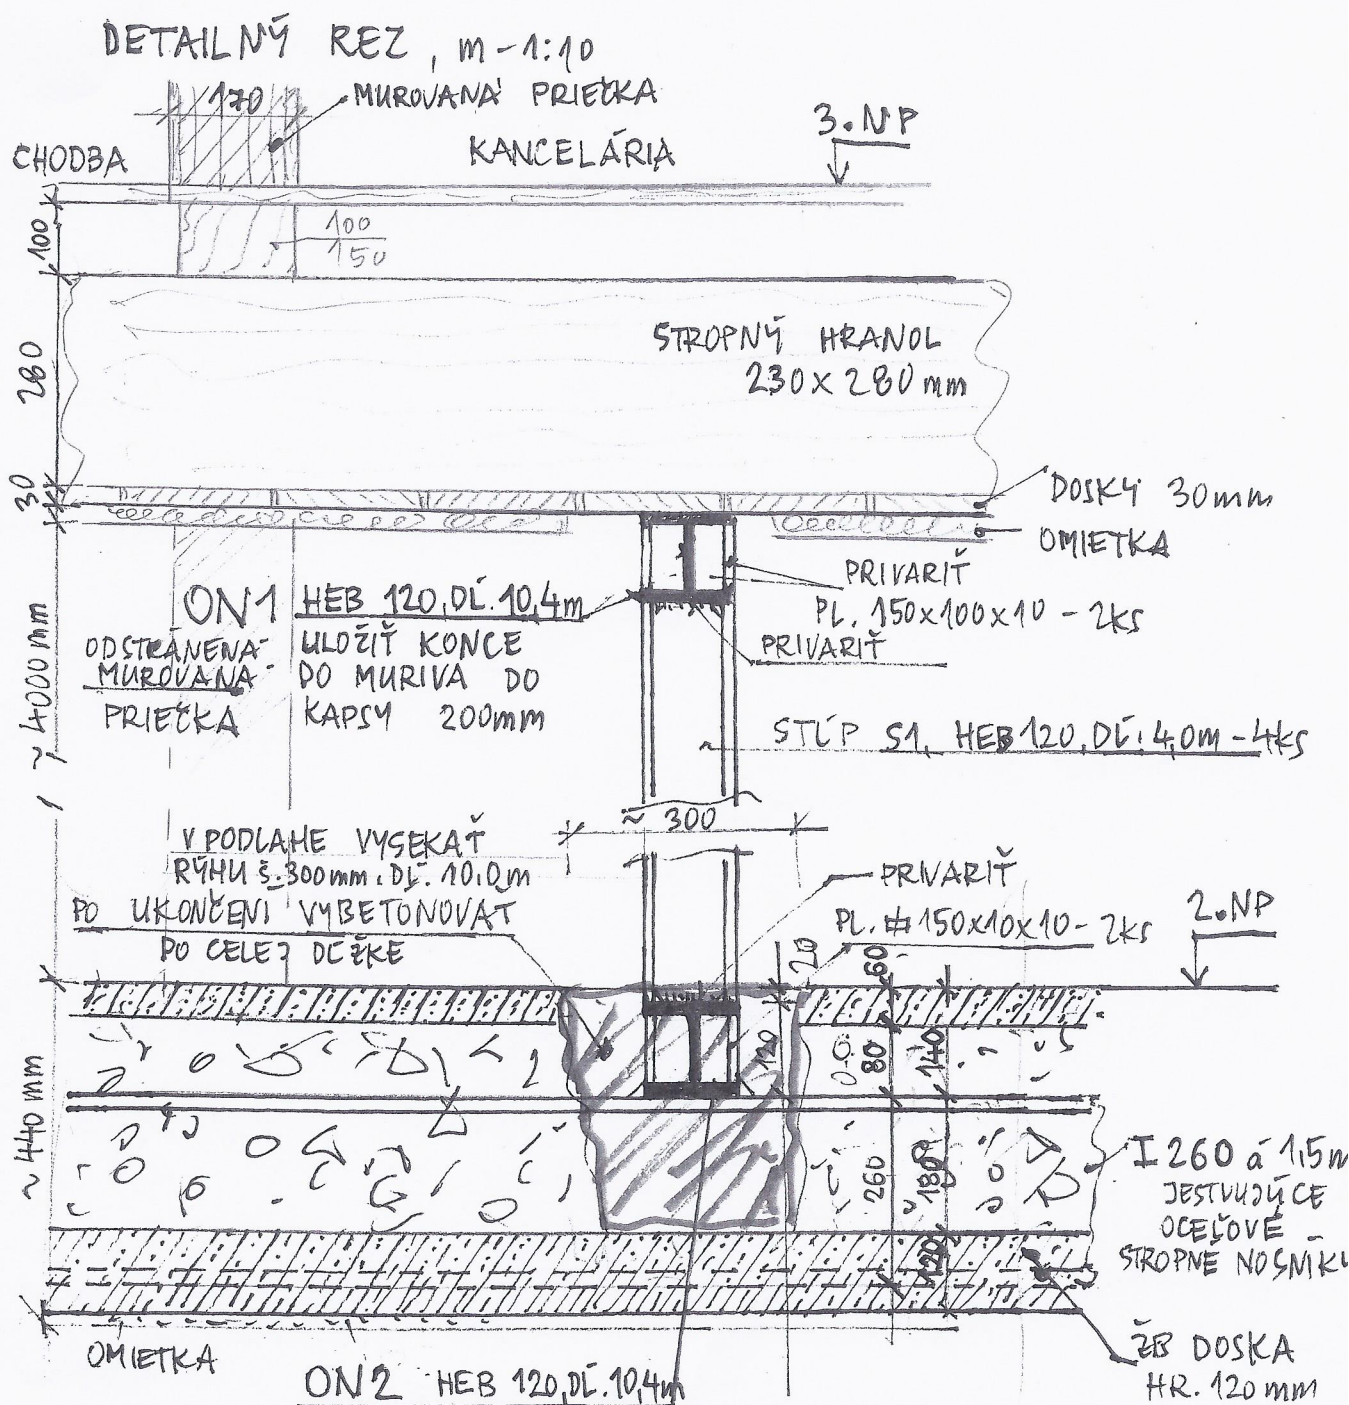 DETAILNÝ REZ, m-1:10
170
MUROVANÁ PRIEČKA
3.NP
CHODBA
KANCELÁRIA
100
100
150
STROPNÝ HRANOL
230 x 280 mm
280
30
DOSKY 30mm
OMIETKA
PRIVARIŤ
PL. 150x100x10 - 2ks
PRIVARIŤ
ON1 HEB 120, DĹ. 10,4m
ULOŽIŤ KONCE
DO MURIVA DO
KAPSY 200mm
ODSTRÁNENÁ
MUROVANÁ
PRIEČKA
~4000mm
STĹP S1, HEB 120, DĹ. 4,0m - 4ks
≈ 300
V PODLAHE VYSEKAŤ
RÝHU š. 300mm, DĹ. 10,0m
PO UKONČENÍ VYBETÓNOVAT
PO CELEJ DĹŽKE
PRIVARIŤ
PL. 150x10x10 - 2ks
2.NP
20
60
120
80
140
~440mm
260
180
120
I 260 á 1,5m
JESTVUJÚCE
OCEĽOVÉ
STROPNÉ NOSNÍKY
ŽB DOSKA
HR. 120mm
OMIETKA
ON2 HEB 120, DĹ. 10,4m